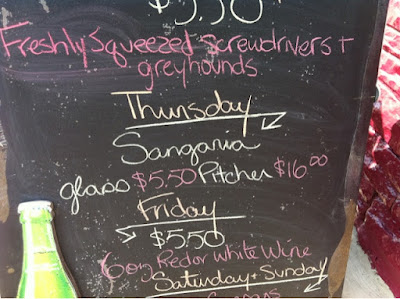 $5.50
Freshly Squeezed Screwdrivers +
greyhounds
Thursday
Sangaria
glass $5.50 Pitcher $16.00
Friday
> $5.50
6oz Red or White Wine
Saturday + Sunday